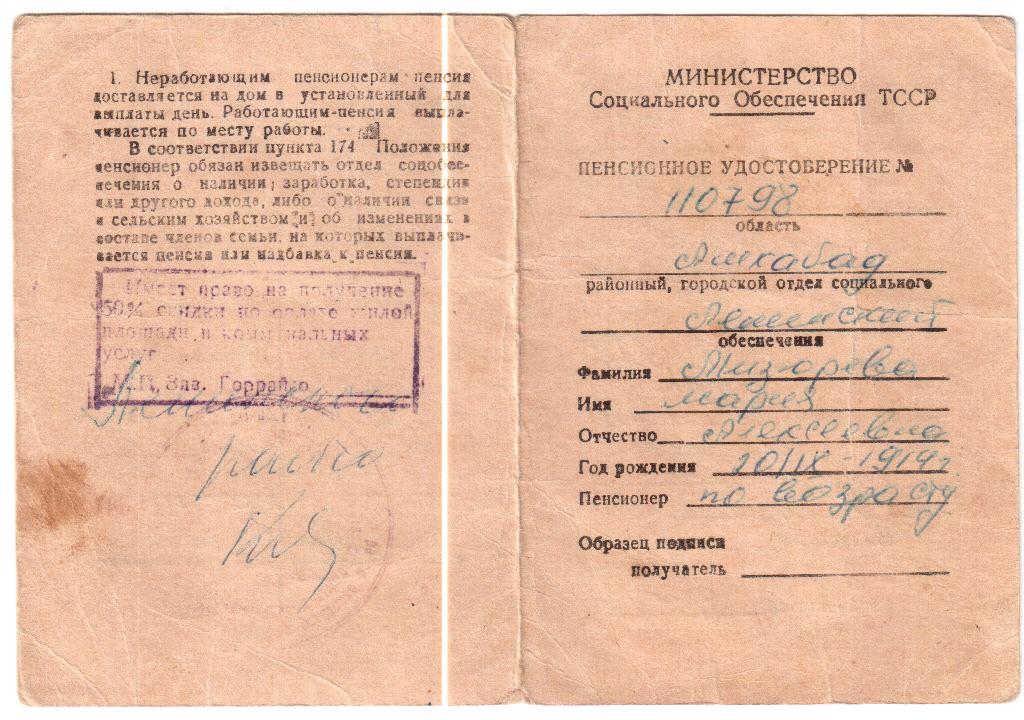 1. Неработающим пенсионерам пенсия
доставляется на дом в установленный для
выплаты день. Работающим-пенсия выпла-
чивается по месту работы.
В соответствии пункта 174 Положения
пенсионер обязан извещать отдел соцобес-
печения о наличии заработка, степендии
или другого дохода, либо о наличии связи
с сельским хозяйством и об изменениях в
составе членов семьи, на которых выплачи-
вается пенсия или надбавка к пенсии.
Имеет право на получение
50% скидки по оплате жилой
площади и коммунальных
услуг
М.П. Зав. Горрайсо
МИНИСТЕРСТВО
Социального Обеспечения ТССР
ПЕНСИОННОЕ УДОСТОВЕРЕНИЕ №
110798
область
Ашхабад
районный, городской отдел социального
обеспечения
Фамилия
Имя Мария
Отчество Алексеевна
Год рождения 20/IX-1919г.
Пенсионер по возрасту
Образец подписи
получатель